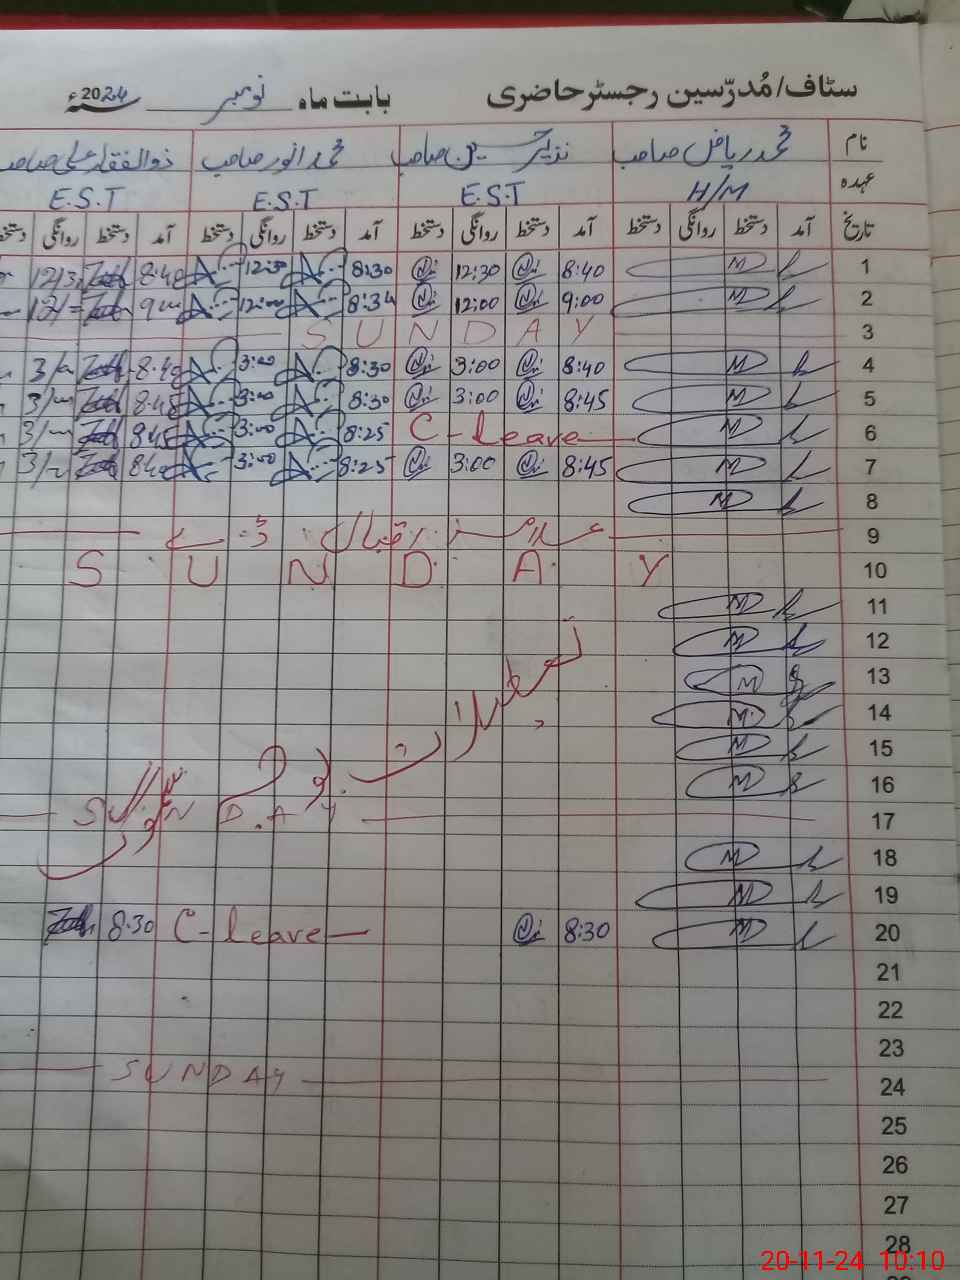 سٹاف/مُدرّسین رجسٹر حاضری بابت ماہ نومبر 2024ء
نام محمد ریاض صاحب نذیر حسین صاحب محمد انور صاحب ذوالفقار علی صاحب
عہدہ H/M E.S.T E.S.T E.S.T
تاریخ آمد دستخط روانگی دستخط آمد دستخط روانگی دستخط آمد دستخط روانگی دستخط آمد دستخط روانگی دستخط
1 8:40 12:30 8:30 12:30 8:40
2 9:00 12:00 8:34 12:00
3 SUNDAY
4 8:40 3:00 8:30 3:00 8:40
5 8:45 3:00 8:30 3:00 8:45
6 C-leave 8:25 3:00 8:45
7 8:45 3:00 8:25 3:00
8
9 علامہ اقبال ڈے
10 SUNDAY
11
12
13
14
تعطیلات
15
16
17 SUNDAY
18
19
20 8:30 C-leave 8:30
21
22
23
24 SUNDAY
25
26
27
28
20-11-24 10:10